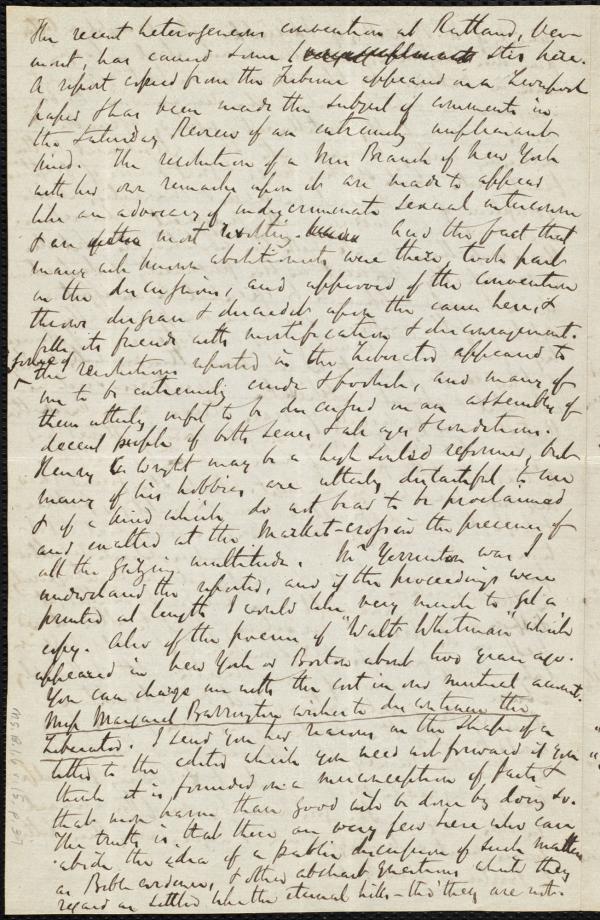 The recent heterogeneous convention at Rutland, Ver-
mont, has caused some stir here.
A report copied from the Tribune appeared in a Liverpool
paper & has been made the subject of comments in
the Saturday Review of an extremely unpleasant
kind. The resolution of a Mrs Branch of New York
with her own remarks upon it are made to appear
like an advocacy of indiscriminate sexual intercourse
& are most revolting. And the fact that
many well known abolitionists were there, took part
in the discussions, and approved of the convention
throws disgrace & discredit upon the cause here, &
fills its friends with mortification & discouragement.
Some of
the resolutions reported in the Liberator appeared to
me to be extremely crude & foolish, and many of
them utterly unfit to be discussed in an assembly of
decent people of both sexes & all ages & conditions.
Henry C Wright may be a high souled reformer, but
many of his hobbies are utterly distasteful to me
& of a kind which do not bear to be proclaimed
and exalted at the Market-cross in the presence of
all the gazing multitude. Mr Yerrinton was I
understand the reporter, and if the proceedings were
printed at length I would like very much to get a
copy. Also of the poems of "Walt Whitman" which
appeared in New York or Boston about two years ago.
You can charge me with the cost in our mutual account.
Miss Margaret Barrington wishes to discontinue the
Liberator. I send you her reasons in the shape of a
letter to the editor which you need not forward if you
think it is founded on a misconception of facts &
that more harm than good will be done by doing so.
The truth is that there are very few here who can
abide the idea of a public discussion of such matters
as Bible evidences, & other abstract questions which they
regard as settled like the eternal hills - tho' they are not.